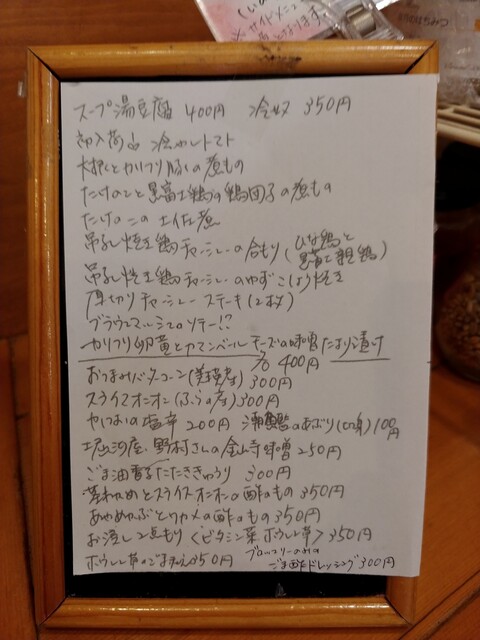 ※サイドメニュー
となります。
はちみつ
スープ湯豆腐 400円 冷奴 350円
初入荷 冷やしトマト
大根とカリフリ豚の煮もの
たけのこと黒富士鶏の鶏団子の煮もの
たけのこの土佐煮
吊るし焼き鶏チャーシューの合もり(ひな鶏と
黒富士親鶏)
吊るし焼き鶏チャーシューのゆずこしょう焼き
厚切りチャーシューステーキ(2枚)
ブラウンマッシュルームソテー!?
カリフリ卵黄とカマンベールチーズの味噌たまり漬け
400円
おつまみバターコーン(美瑛産)300円
スライスオニオン(ふらの産)300円
かつおの塩辛 200円 のあぶり(口身)100円
堀河屋 野村さんの金山寺味噌 250円
ごま油香るたたききゅうり 300円
茎わかめとスライスオニオンの酢のもの 350円
あかめかぶとワカメの酢のもの 350円
お浸し2点もり〈ビタミン菜 ホウレン草〉350円
ホウレン草のごま和え 350円 ブロッコリーの
ごま酢ドレッシング 300円